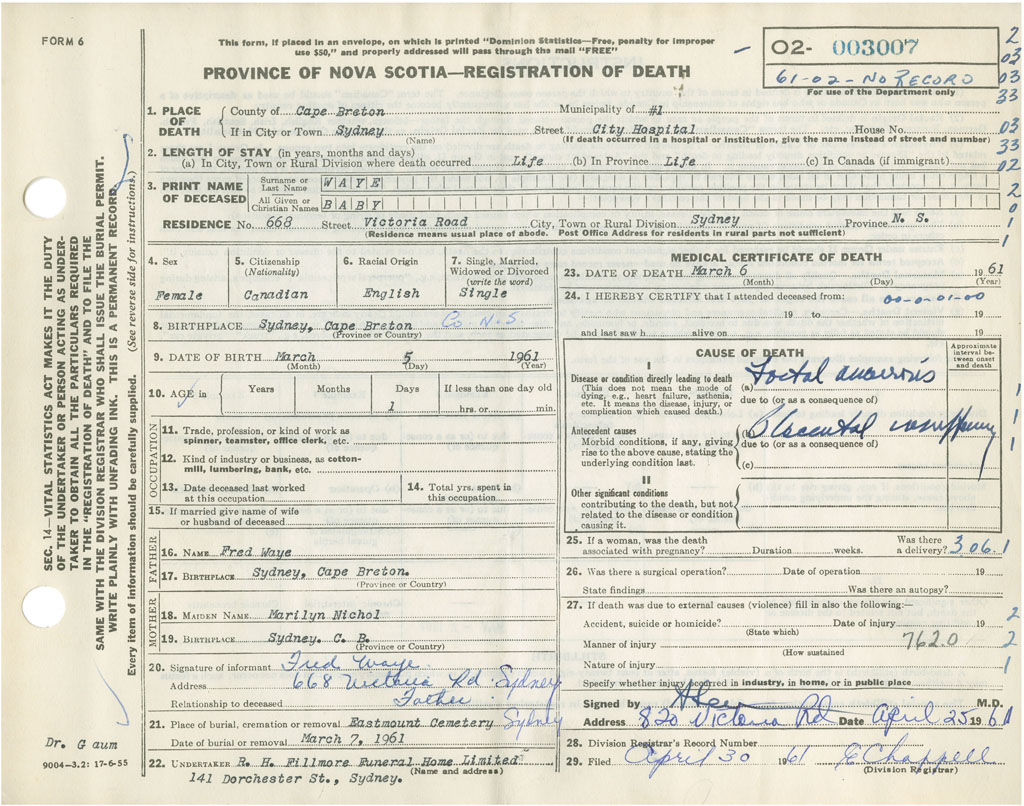 FORM 6
This form, if placed in an envelope, on which is printed "Dominion Statistics—Free, penalty for improper
use $50," and properly addressed will pass through the mail "FREE"
PROVINCE OF NOVA SCOTIA—REGISTRATION OF DEATH
02- 003007
61-02-NO RECORD
For use of the Department only
1. PLACE OF DEATH { County of Cape Breton Municipality of #1
If in City or Town Sydney Street City Hospital House No.
(Name) (If death occurred in a hospital or institution, give the name instead of street and number)
2. LENGTH OF STAY (in years, months and days)
(a) In City, Town or Rural Division where death occurred Life (b) In Province Life (c) In Canada (if immigrant)
3. PRINT NAME OF DECEASED
Surname or Last Name WAYE
All Given or Christian Names BABY
RESIDENCE No. 668 Street Victoria Road City, Town or Rural Division Sydney Province N. S.
(Residence means usual place of abode. Post Office Address for residents in rural parts not sufficient)
4. Sex
Female
5. Citizenship
(Nationality)
Canadian
6. Racial Origin
English
7. Single, Married,
Widowed or Divorced
(write the word)
Single
8. BIRTHPLACE Sydney, Cape Breton Co N.S.
(Province or Country)
9. DATE OF BIRTH March 5 1961
(Month) (Day) (Year)
10. AGE in
Years Months Days If less than one day old
1 hrs. or min.
OCCUPATION
11. Trade, profession, or kind of work as
spinner, teamster, office clerk, etc.
12. Kind of industry or business, as cotton-
mill, lumbering, bank, etc.
13. Date deceased last worked
at this occupation
14. Total yrs. spent in
this occupation
15. If married give name of wife
or husband of deceased
FATHER
16. NAME Fred Waye
17. BIRTHPLACE Sydney, Cape Breton.
(Province or Country)
MOTHER
18. MAIDEN NAME Marilyn Nichol
19. BIRTHPLACE Sydney. C. B.
(Province or Country)
20. Signature of informant Fred Waye.
Address 668 Victoria Rd. Sydney
Relationship to deceased Father
21. Place of burial, cremation or removal Eastmount Cemetery Sydney
Date of burial or removal March 7, 1961
22. UNDERTAKER R. H. Fillmore Funeral Home Limited
(Name and address)
141 Dorchester St., Sydney.
MEDICAL CERTIFICATE OF DEATH
23. DATE OF DEATH March 6 1961
(Month) (Day) (Year)
24. I HEREBY CERTIFY that I attended deceased from: 00-0-01-00
19 to 19
and last saw h alive on 19
CAUSE OF DEATH
Approximate interval between onset and death
I
Disease or condition directly leading to death
(This does not mean the mode of
dying, e.g., heart failure, asthenia,
etc. It means the disease, injury, or
complication which caused death.)
(a) Foetal
due to (or as a consequence of)
Antecedent causes
Morbid conditions, if any, giving
rise to the above cause, stating the
underlying condition last.
(b) Placental
due to (or as a consequence of)
(c)
II
Other significant conditions
contributing to the death, but not
related to the disease or condition
causing it.
25. If a woman, was the death
associated with pregnancy? Duration weeks. Was there
a delivery? 306.1
26. Was there a surgical operation? Date of operation 19
State findings Was there an autopsy?
27. If death was due to external causes (violence) fill in also the following:—
Accident, suicide or homicide? Date of injury 19
(State which)
Manner of injury 762.0
(How sustained
Nature of injury
Specify whether injury occurred in industry, in home, or in public place
Signed by M.D.
Address 820 Victoria Rd Date April 25 1961
28. Division Registrar's Record Number
29. Filed April 30 1961 E Chappell
(Division Registrar)
SEC. 14—VITAL STATISTICS ACT MAKES IT THE DUTY
OF THE UNDERTAKER OR PERSON ACTING AS UNDER-
TAKER TO OBTAIN ALL THE PARTICULARS REQUIRED
IN THE "REGISTRATION OF DEATH" AND TO FILE THE
SAME WITH THE DIVISION REGISTRAR WHO SHALL ISSUE THE BURIAL PERMIT.
WRITE PLAINLY WITH UNFADING INK. THIS IS A PERMANENT RECORD.
Every item of information should be carefully supplied. (See reverse side for instructions.)
Dr. Gaum
9004-3.2: 17-6-55
2
03
03
33
03
33
02
2
0
1
1
1
1
1
2
2
1